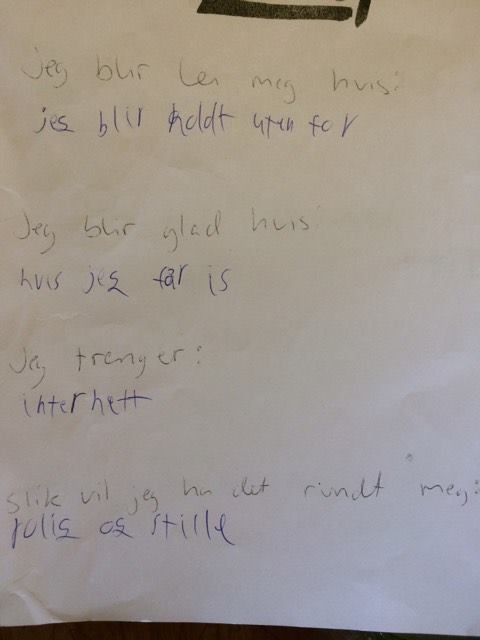 Jeg blir lei meg hvis:
jeg blir holdt uten for
Jeg blir glad hvis:
hvis jeg får is
Jeg trenger:
internett
Slik vil jeg ha det rundt meg:
rolig og stille